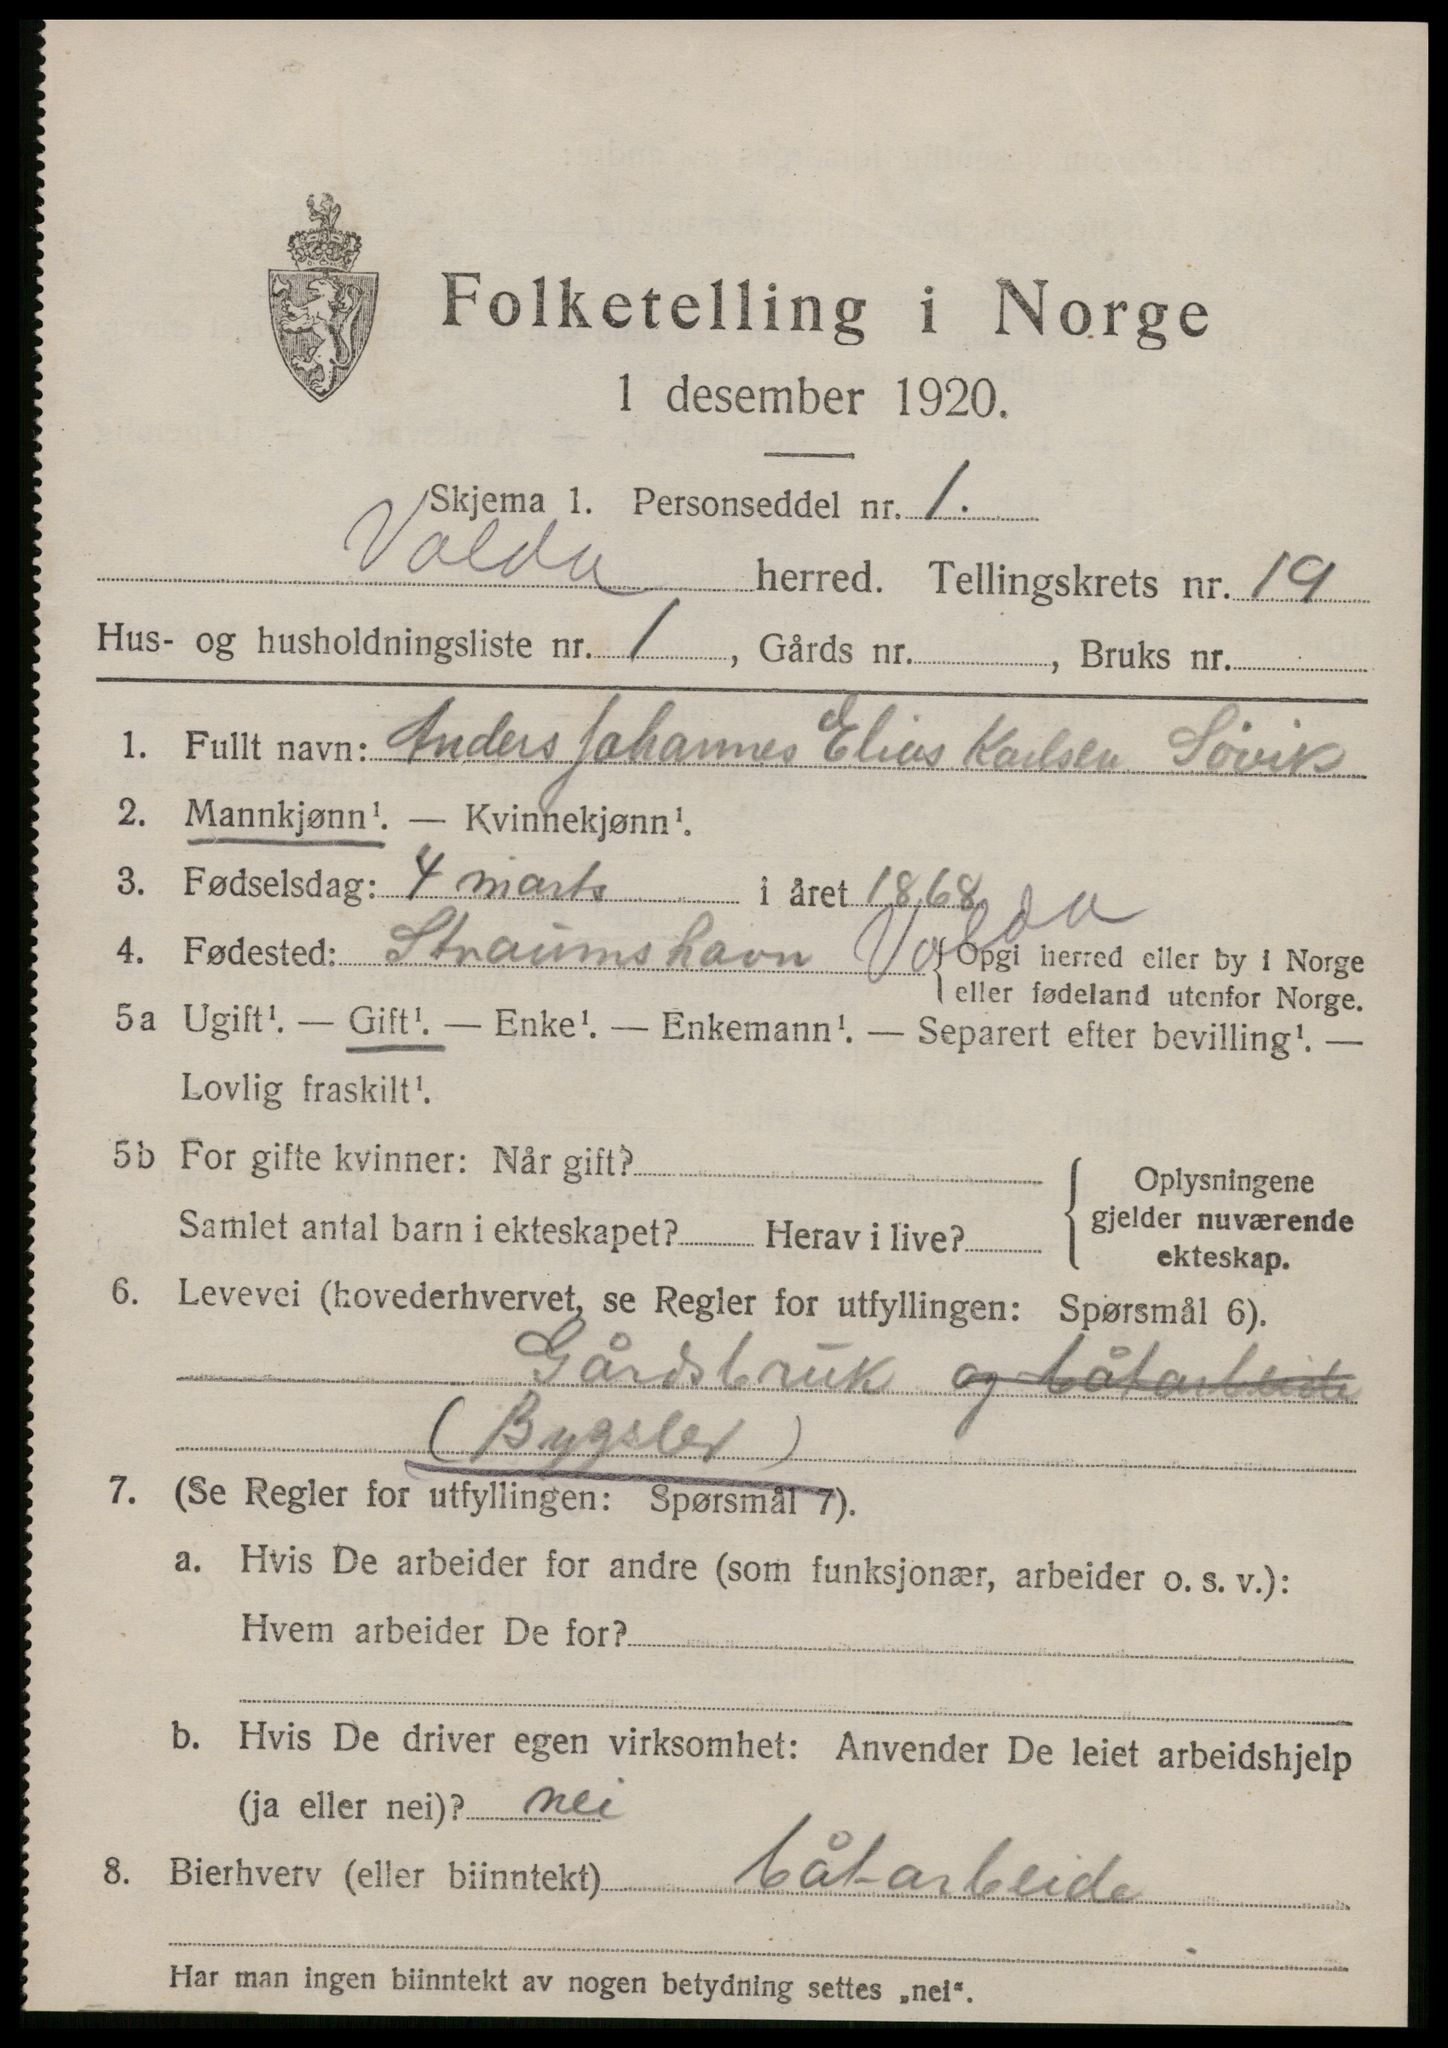 Folketelling i Norge
1 desember 1920.
Skjema 1. Personseddel nr. 1.
Volda herred. Tellingskrets nr. 19
Hus- og husholdningsliste nr. 1, Gårds nr. , Bruks nr.
1. Fullt navn: Anders Johannes Elias Karlsen Søvik
2. Mannkjønn¹. — Kvinnekjønn¹.
3. Fødselsdag: 4 marts i året 1868
4. Fødested: Straumshavn Volda { Opgi herred eller by i Norge
eller fødeland utenfor Norge.
5a Ugift¹. — Gift¹. — Enke¹. — Enkemann¹. — Separert efter bevilling¹. —
Lovlig fraskilt¹.
5b For gifte kvinner: Når gift? { Oplysningene
gjelder nuværende
Samlet antal barn i ekteskapet? Herav i live? ekteskap.
6. Levevei (hovederhvervet, se Regler for utfyllingen: Spørsmål 6).
Gårdsbruk og båtarbeide
(Bygsler)
7. (Se Regler for utfyllingen: Spørsmål 7).
a. Hvis De arbeider for andre (som funksjonær, arbeider o. s. v.):
Hvem arbeider De for?
b. Hvis De driver egen virksomhet: Anvender De leiet arbeidshjelp
(ja eller nei)? nei
8. Bierhverv (eller biinntekt) båtarbeide
Har man ingen biinntekt av nogen betydning settes „nei“.